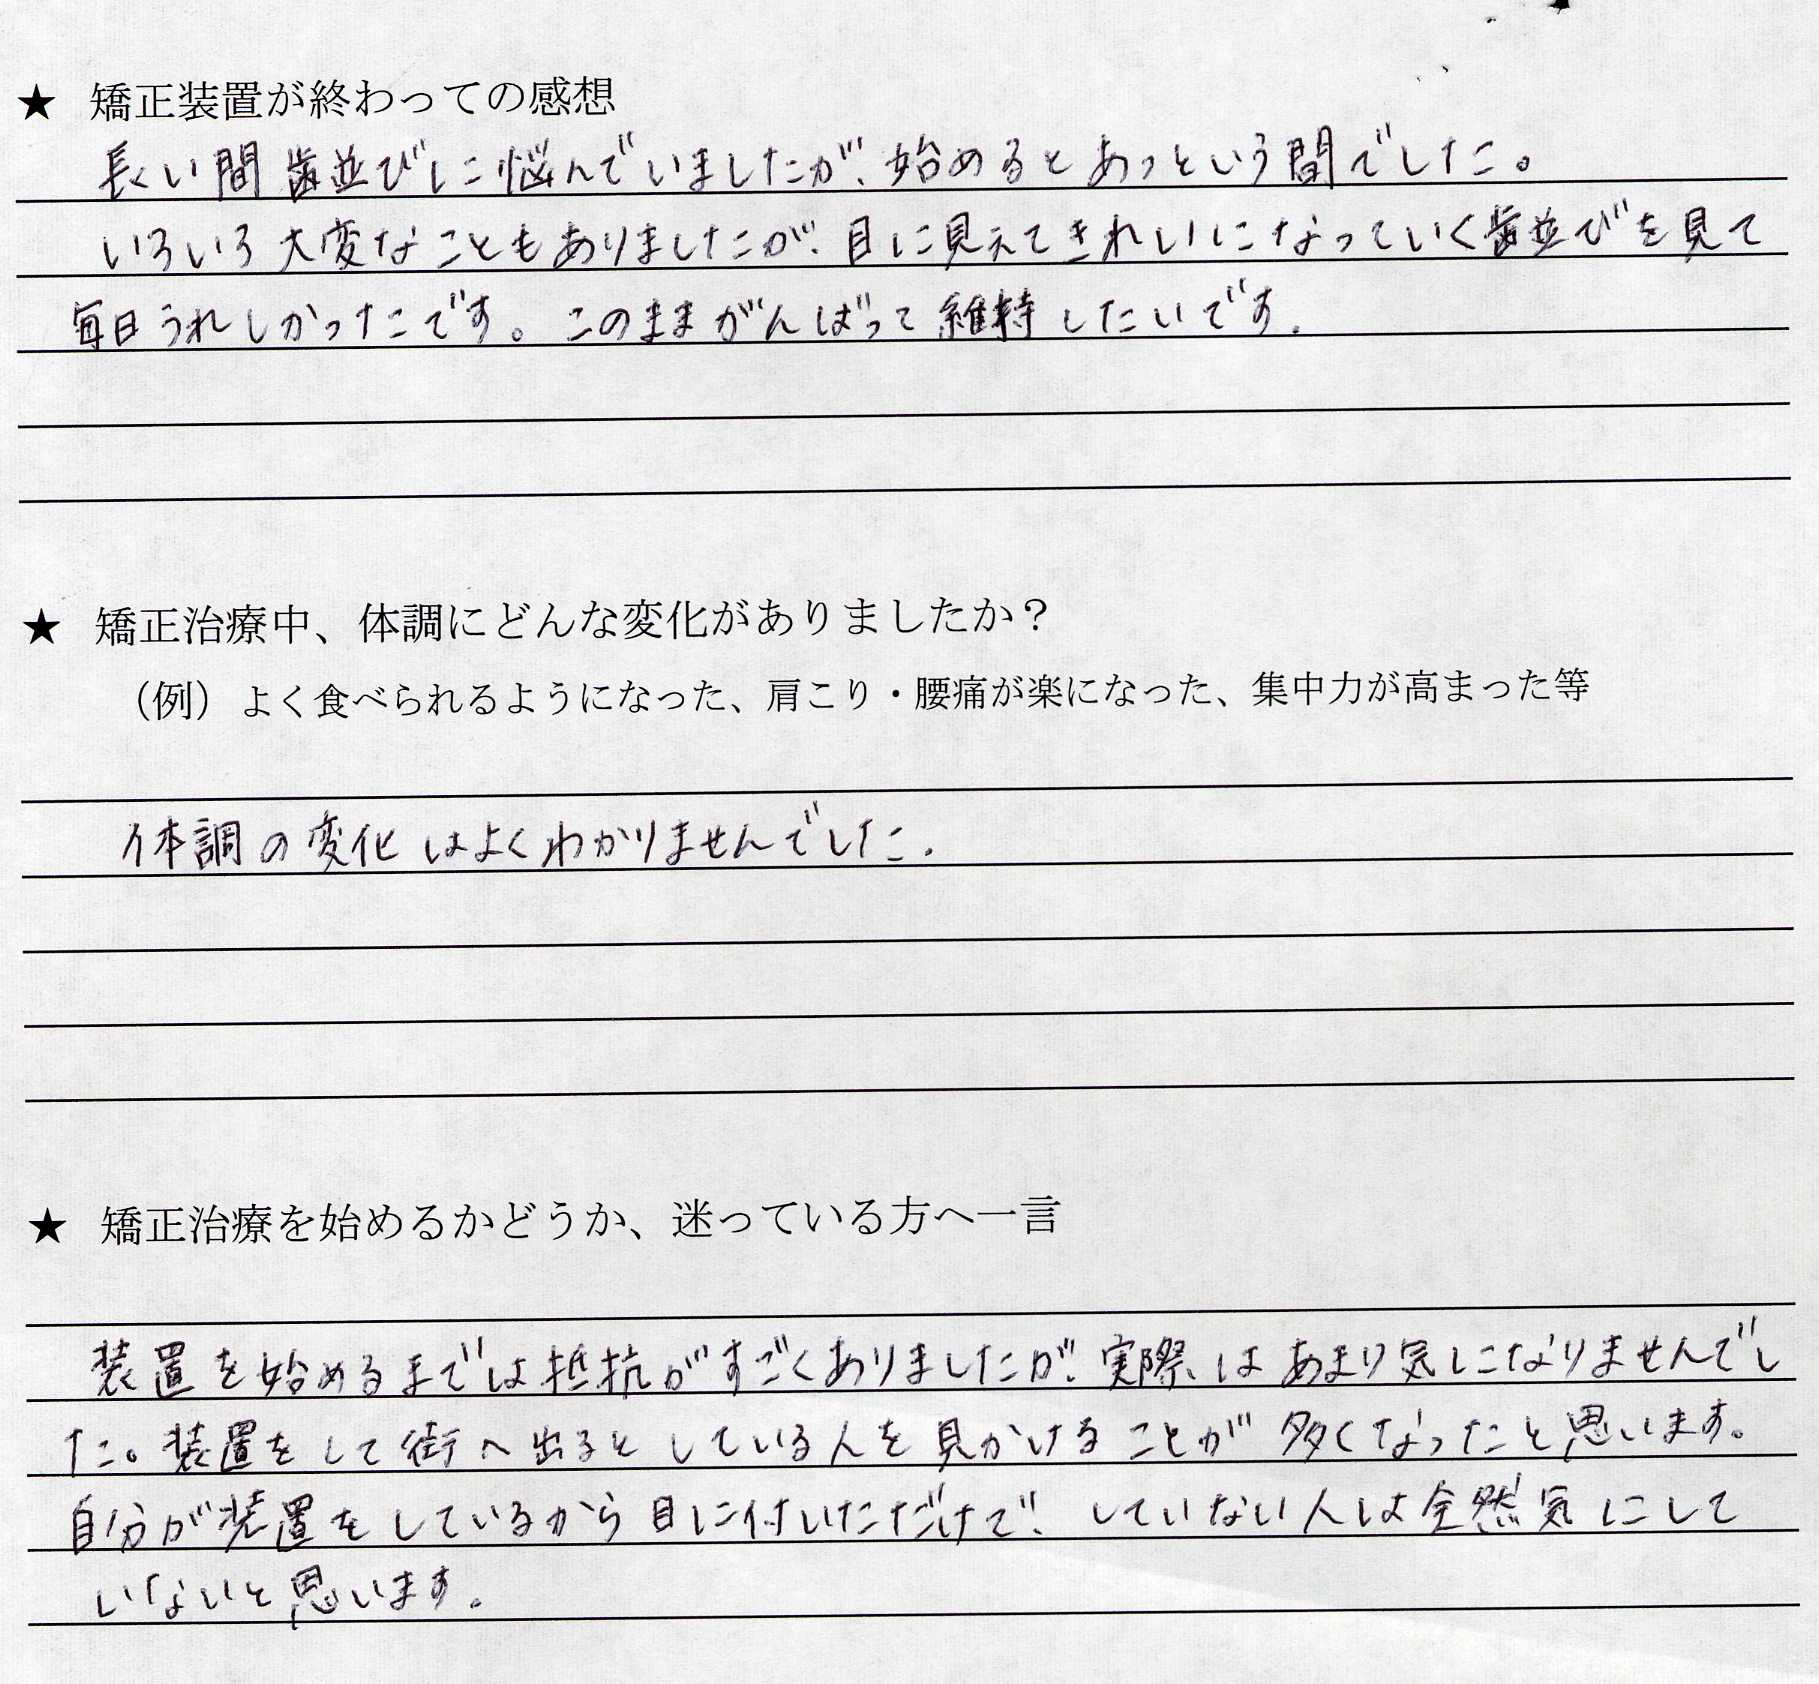 ★ 矯正装置が終わっての感想
長い間歯並びに悩んでいましたが、始めるとあっという間でした。
いろいろ大変なこともありましたが、目に見えてきれいになっていく歯並びを見て
毎日うれしかったです。このままがんばって維持したいです。
★ 矯正治療中、体調にどんな変化がありましたか？
（例）よく食べられるようになった、肩こり・腰痛が楽になった、集中力が高まった等
体調の変化はよくわかりませんでした。
★ 矯正治療を始めるかどうか、迷っている方へ一言
装置を始めるまでは抵抗がすごくありましたが、実際はあまり気になりませんでし
た。装置をして街へ出るとしている人を見かけることが多くなったと思います。
自分が装置をしているから目に付いただけで、していない人は全然気にして
いないと思います。